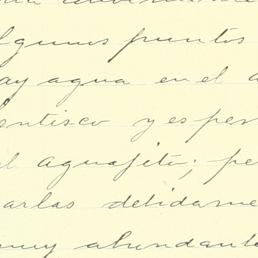 lgunos puntos
ay agua en el a
entisco y esper
el aguajito; pe
arlas debidame
muy abundante